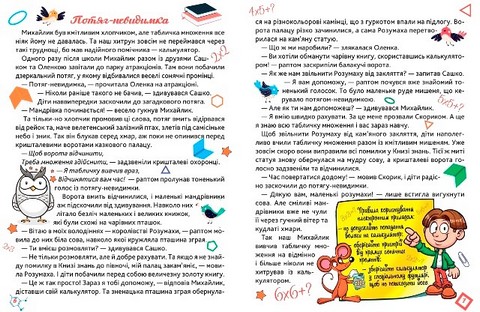 Потяг-невидимка
Михайлик був кмітливим хлопчиком, але табличка множення все
ніяк йому не давалась. Та наш хитрун зовсім не переймався через
такі труднощі, бо мав надійного помічника — калькулятор.
Одного разу після школи Михайлик разом із друзями Саш-
ком та Оленкою завітали до парку атракціонів. Там вони побачили
дзеркальний потяг, у якому відбивалися веселі сонячні промінці.
— Потяг-невидимка, — прочитала Оленка на атракціоні.
— Ніколи раніше такого не бачив, — здивувався Сашко.
Діти навипередки заскочили до загадкового потяга.
— Мандрівка починається! — весело гукнув Михайлик.
Та тільки-но хлопчик промовив ці слова, потяг вмить відірвався
від рейок та, наче велетенський залізний птах, злетів під самісіньке
небо і зник. Так він блукав серед хмар, аж поки не опинився перед
кришталевими воротами казкового палацу.
— Щоб ворота відчинити,
Треба множення здійснити, — задзвеніли кришталеві охоронці.
— Я табличку вивчив враз,
Відчинятися вам час! — раптом пролунав тоненький
голос із потягу-невидимки.
Ворота вмить відчинилися, і маленькі мандрівники
аж підскочили від здивування. Навколо них
літало безліч маленьких і великих книжок,
які були схожі на чарівних пташок.
— Вітаю в моїх володіннях — королівстві Розумахи, — раптом мо-
вила до них біла сова, навколо якої кружляла пташина зграя
— Ти вмієш розмовляти? — здивувався Сашко.
— Не тільки розмовляти, але й добре рахувати. Та якщо я не знайду
помилку в Книзі знань до півночі, мій палац закам'яніє, — мови-
ла Розумаха. І діти побачили перед собою величезну золоту книгу.
— Це ж так просто! Зараз я тобі допоможу, — відповів Михайлик,
діставши свій калькулятор. Та зненацька пташина зграя обернула-
2x2
4x5=?
ся на різнокольорові камінці, що з гуркотом впали на підлогу. Во-
рота палацу різко зачинилися, а сама Розумаха перетво-
рилася на кам'яну статую.
— Що ж ми наробили? — злякалася Оленка.
— Ви хотіли обманути чарівну книгу, скориставшись калькуля-
тором! — раптом заскрипіли балакучі ворота.
— Як же нам звільнити Розумаху від закляття? — запитав Сашко.
— Я вам допоможу, — раптом почувся вже знайомий то-
ненький голосок. То було маленьке руде мишеня, що ке-
рувало потягом-невидимкою.
— Але як ти нам допоможеш? — здивувався Михайлик.
— Я вмію швидко рахувати. За це мене прозвали Скориком. А ще
я знаю всю табличку множення і вас зараз навчу.
— Щоб звільнити Розумаху від кам'яного закляття, діти наполег-
ливо вчили табличку множення разом із кмітливим мишеням. Уже
зовсім скоро вони виправили всі помилки у Книзі знань. Тієї ж миті
статуя знову обернулась на сову, а кришталеві ворота го-
лосно задзвеніли й відчинилися.
— Час повертатися додому! — мовив Скорик, і діти радіс-
но заскочили до потягу-невидимки.
— Дякую вам, маленькі розумахи! — лише встигла вигукнути
сова. Але сміливі ман-
дрівники вже не чули
її через гучний вітер та
кудлаті хмари.
Так наш Михайлик
вивчив табличку мно-
ження на відмінно
і більше ніколи не
хитрував із каль-
кулятором.
6x6=?